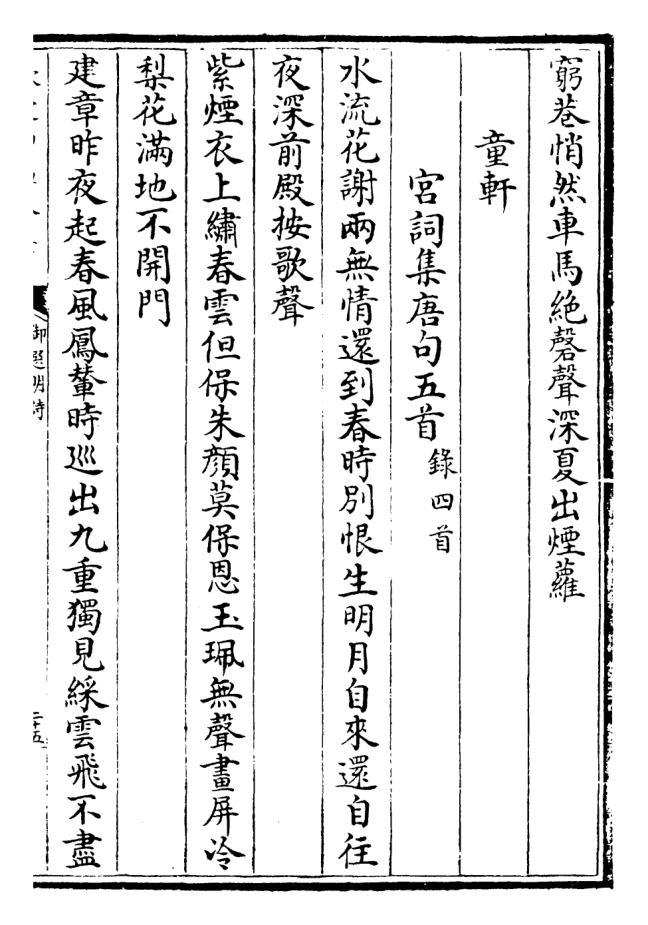 窮巷悄然車馬絶磬聲深夏出煙蘿
童軒
宮詞集唐句五首錄四首
水流花謝兩無情還到春時別恨生明月自來還自往
夜深前殿按歌聲
紫煙衣上繡春雲但保朱顔莫保恩玉珮無聲畫屏冷
梨花滿地不開門
建章昨夜起春風鳳輦時巡出九重獨見綵雲飛不盡
御選明詩
二十五